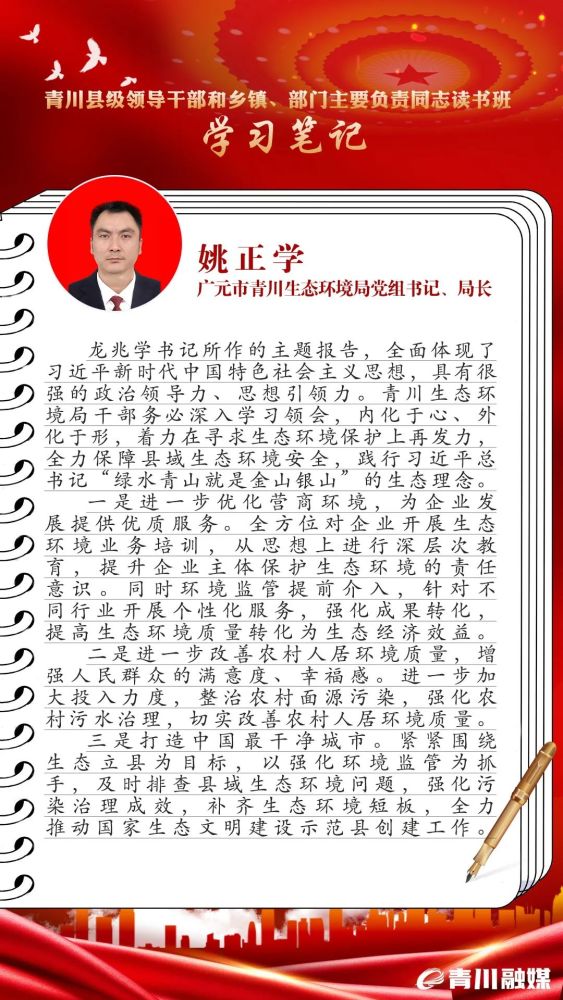 青川县级领导干部和乡镇、部门主要负责同志读书班
学习笔记
姚正学
广元市青川生态环境局党组书记、局长
龙兆学书记所作的主题报告，全面体现了
习近平新时代中国特色社会主义思想，具有很
强的政治领导力、思想引领力。青川生态环
境局干部务必深入学习领会，内化于心、外
化于形，着力在寻求生态环境保护上再发力，
全力保障县域生态环境安全，践行习近平总
书记“绿水青山就是金山银山”的生态理念。
一是进一步优化营商环境，为企业发
展提供优质服务。全方位对企业开展生态
环境业务培训，从思想上进行深层次教
育，提升企业主体保护生态环境的责任
意识。同时环境监管提前介入，针对不
同行业开展个性化服务，强化成果转化，
提高生态环境质量转化为生态经济效益。
二是进一步改善农村人居环境质量，增
强人民群众的满意度、幸福感。进一步加
大投入力度，整治农村面源污染，强化农
村污水治理，切实改善农村人居环境质量。
三是打造中国最干净城市。紧紧围绕
生态立县为目标，以强化环境监管为抓
手，及时排查县域生态环境问题，强化污
染治理成效，补齐生态环境短板，全力
推动国家生态文明建设示范县创建工作。
青川融媒